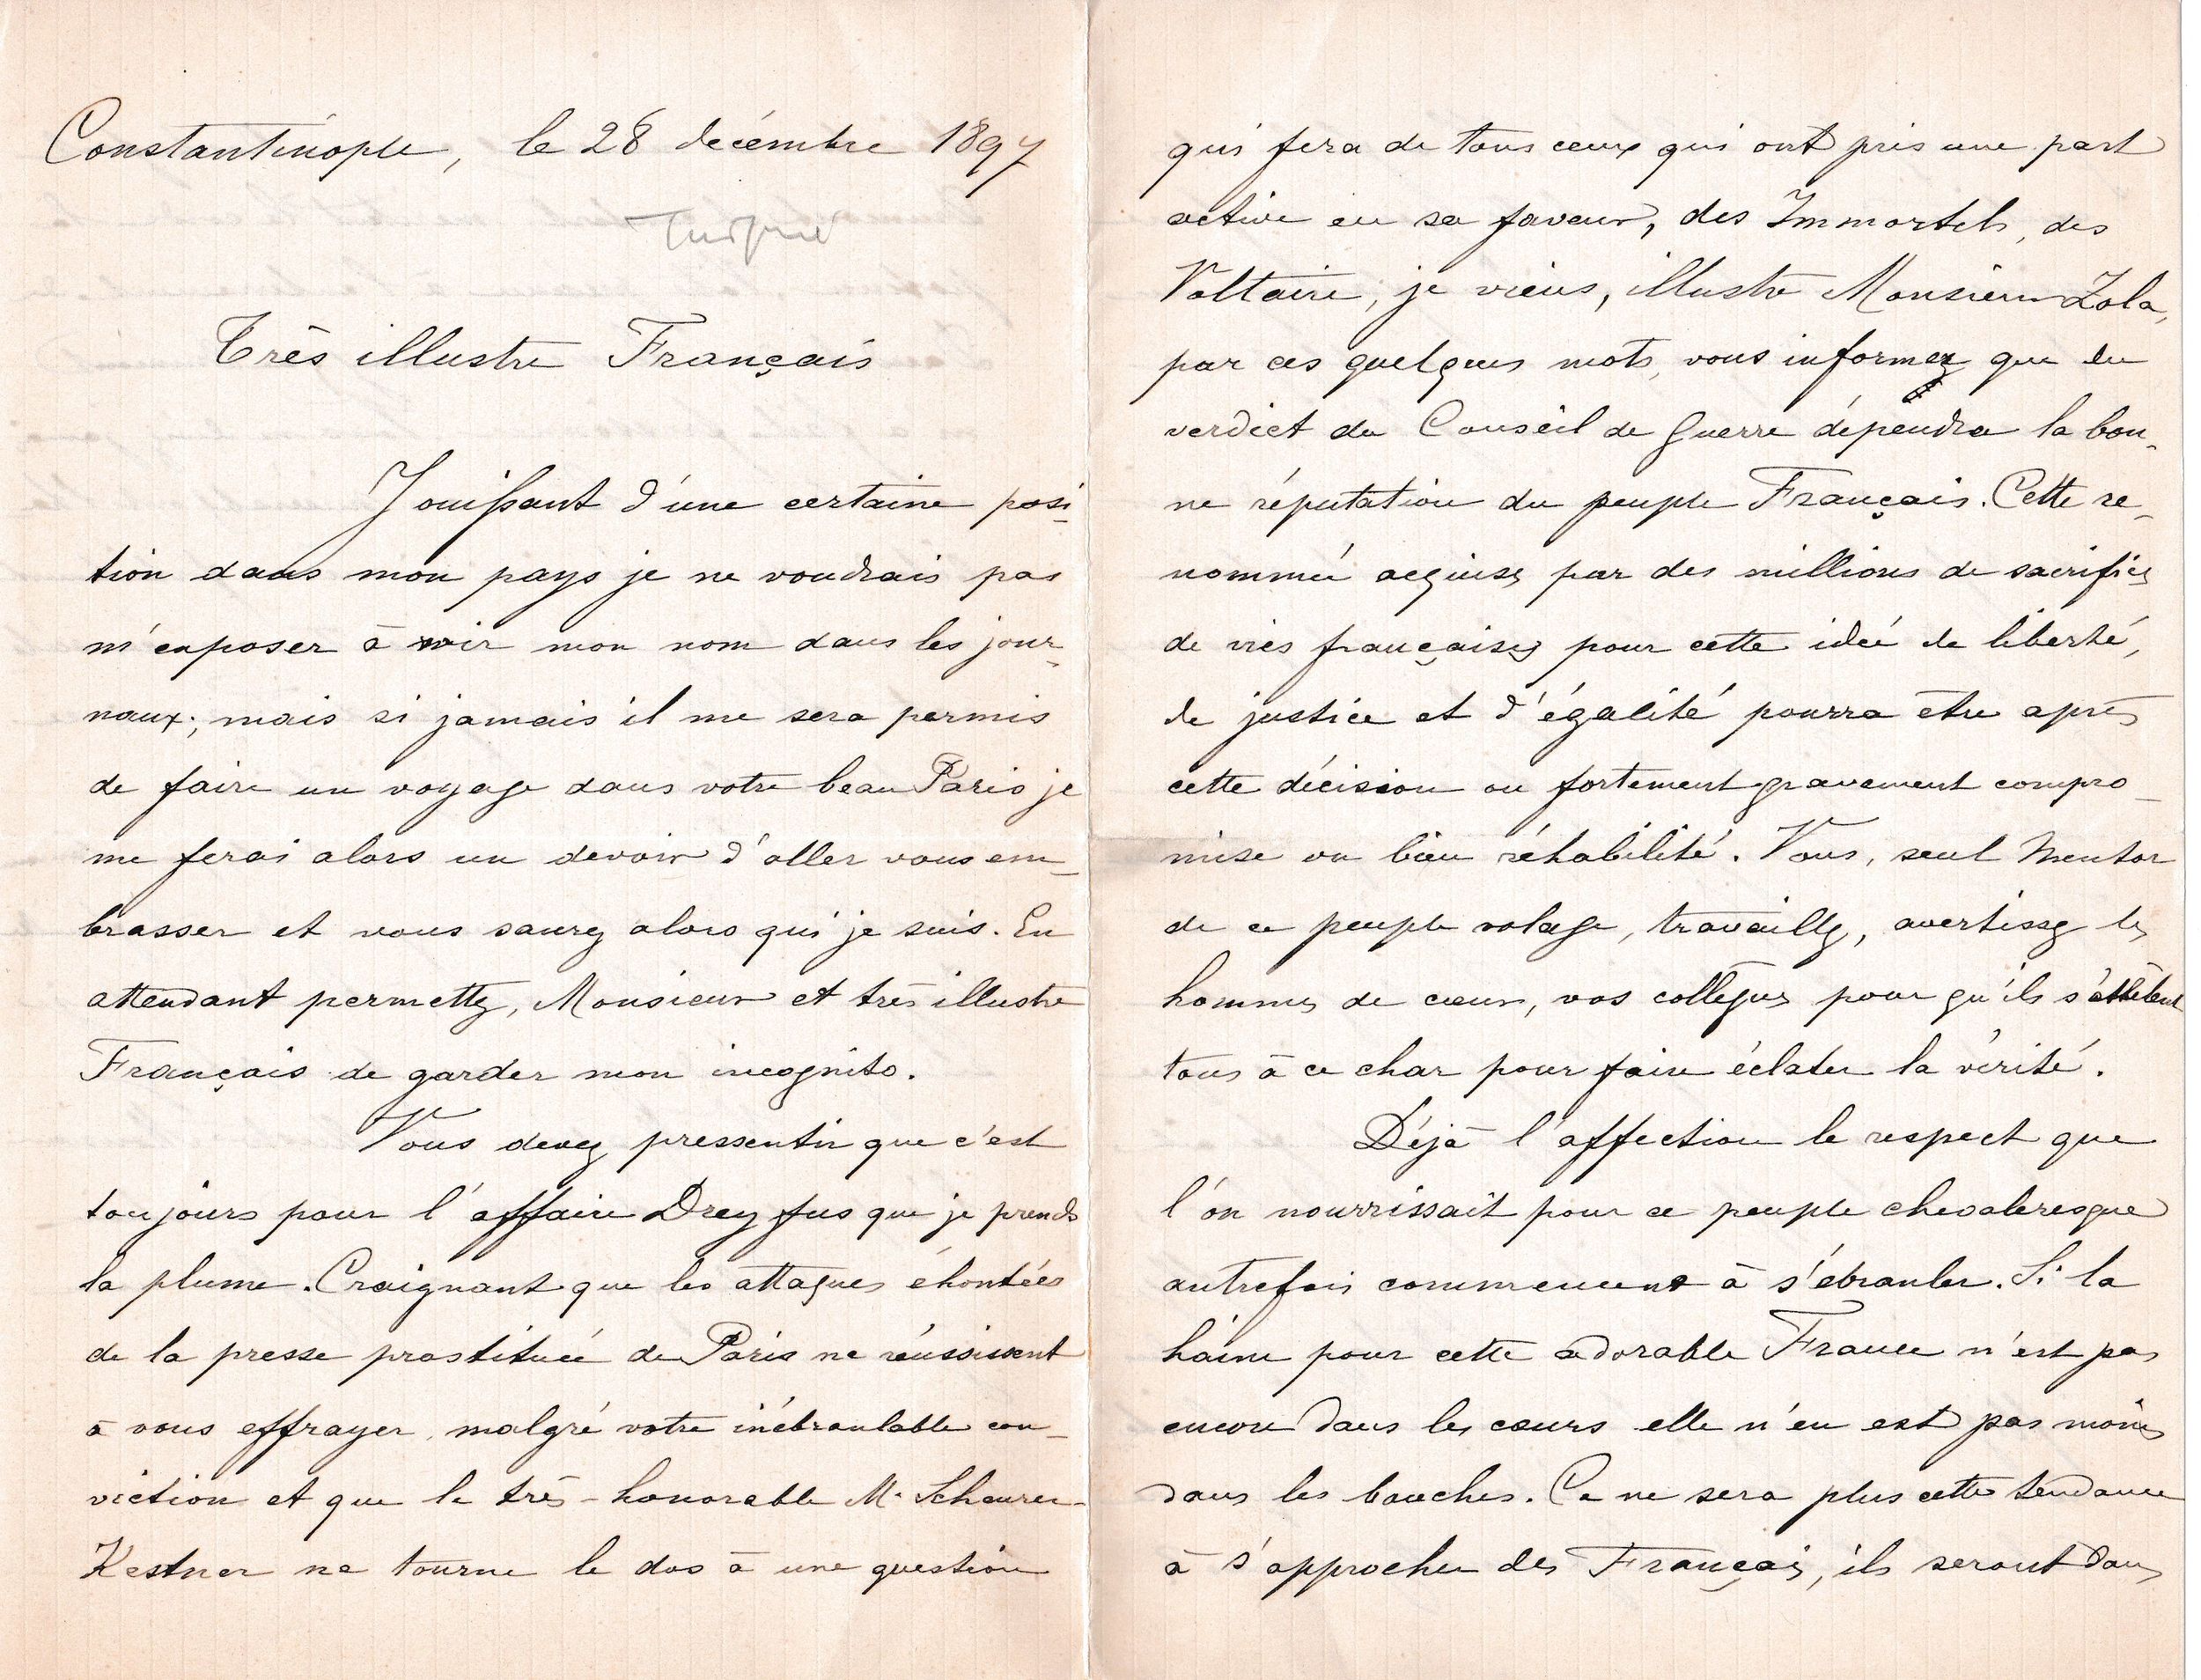 Constantinople, le 28 décembre 1897
Turquie
Très illustre Français
Jouissant d'une certaine posi-
tion dans mon pays je ne voudrais pas
m'exposer à voir mon nom dans les jour-
naux; mais si jamais il me sera permis
de faire un voyage dans votre beau Paris je
me ferai alors un devoir d'aller vous em-
brasser et vous saurez alors qui je suis. En
attendant permettez, Monsieur et très illustre
Français de garder mon incognito.
Vous devez pressentir que c'est
toujours pour l'affaire Dreyfus que je prends
la plume. Craignant que les attaques éhontées
de la presse prostituée de Paris ne réussissent
à vous effrayer, malgré votre inébranlable con-
viction et que le très-honorable M. Scheurer-
Kestner ne tourne le dos à une question
qui fera de tous ceux qui ont pris une part
active en sa faveur, des Immortels, des
Voltaire, je viens, illustre Monsieur Zola,
par ces quelques mots, vous informez que du
verdict du Conseil de Guerre dépendra la bon-
ne réputation du peuple Français. Cette re-
nommée acquise par des millions de sacrifices
de vies françaises pour cette idée de liberté,
de justice et d'égalité pourra être après
cette décision ou fortement gravement compro-
mise ou bien réhabilité. Vous, seul Mentor
de ce peuple volage, travaillez, avertissez les
hommes de cœur, vos collègues pour qu'ils s'attèlent
tous à ce char pour faire éclater la vérité.
Déjà l'affection le respect que
l'on nourrissait pour ce peuple chevaleresque
autrefois commencent à s'ébranler. Si la
haine pour cette adorable France n'est pas
encore dans les cœurs elle n'en est pas moins
dans les bouches. Ce ne sera plus cette tendance
à s'approcher des Français, ils seront dans